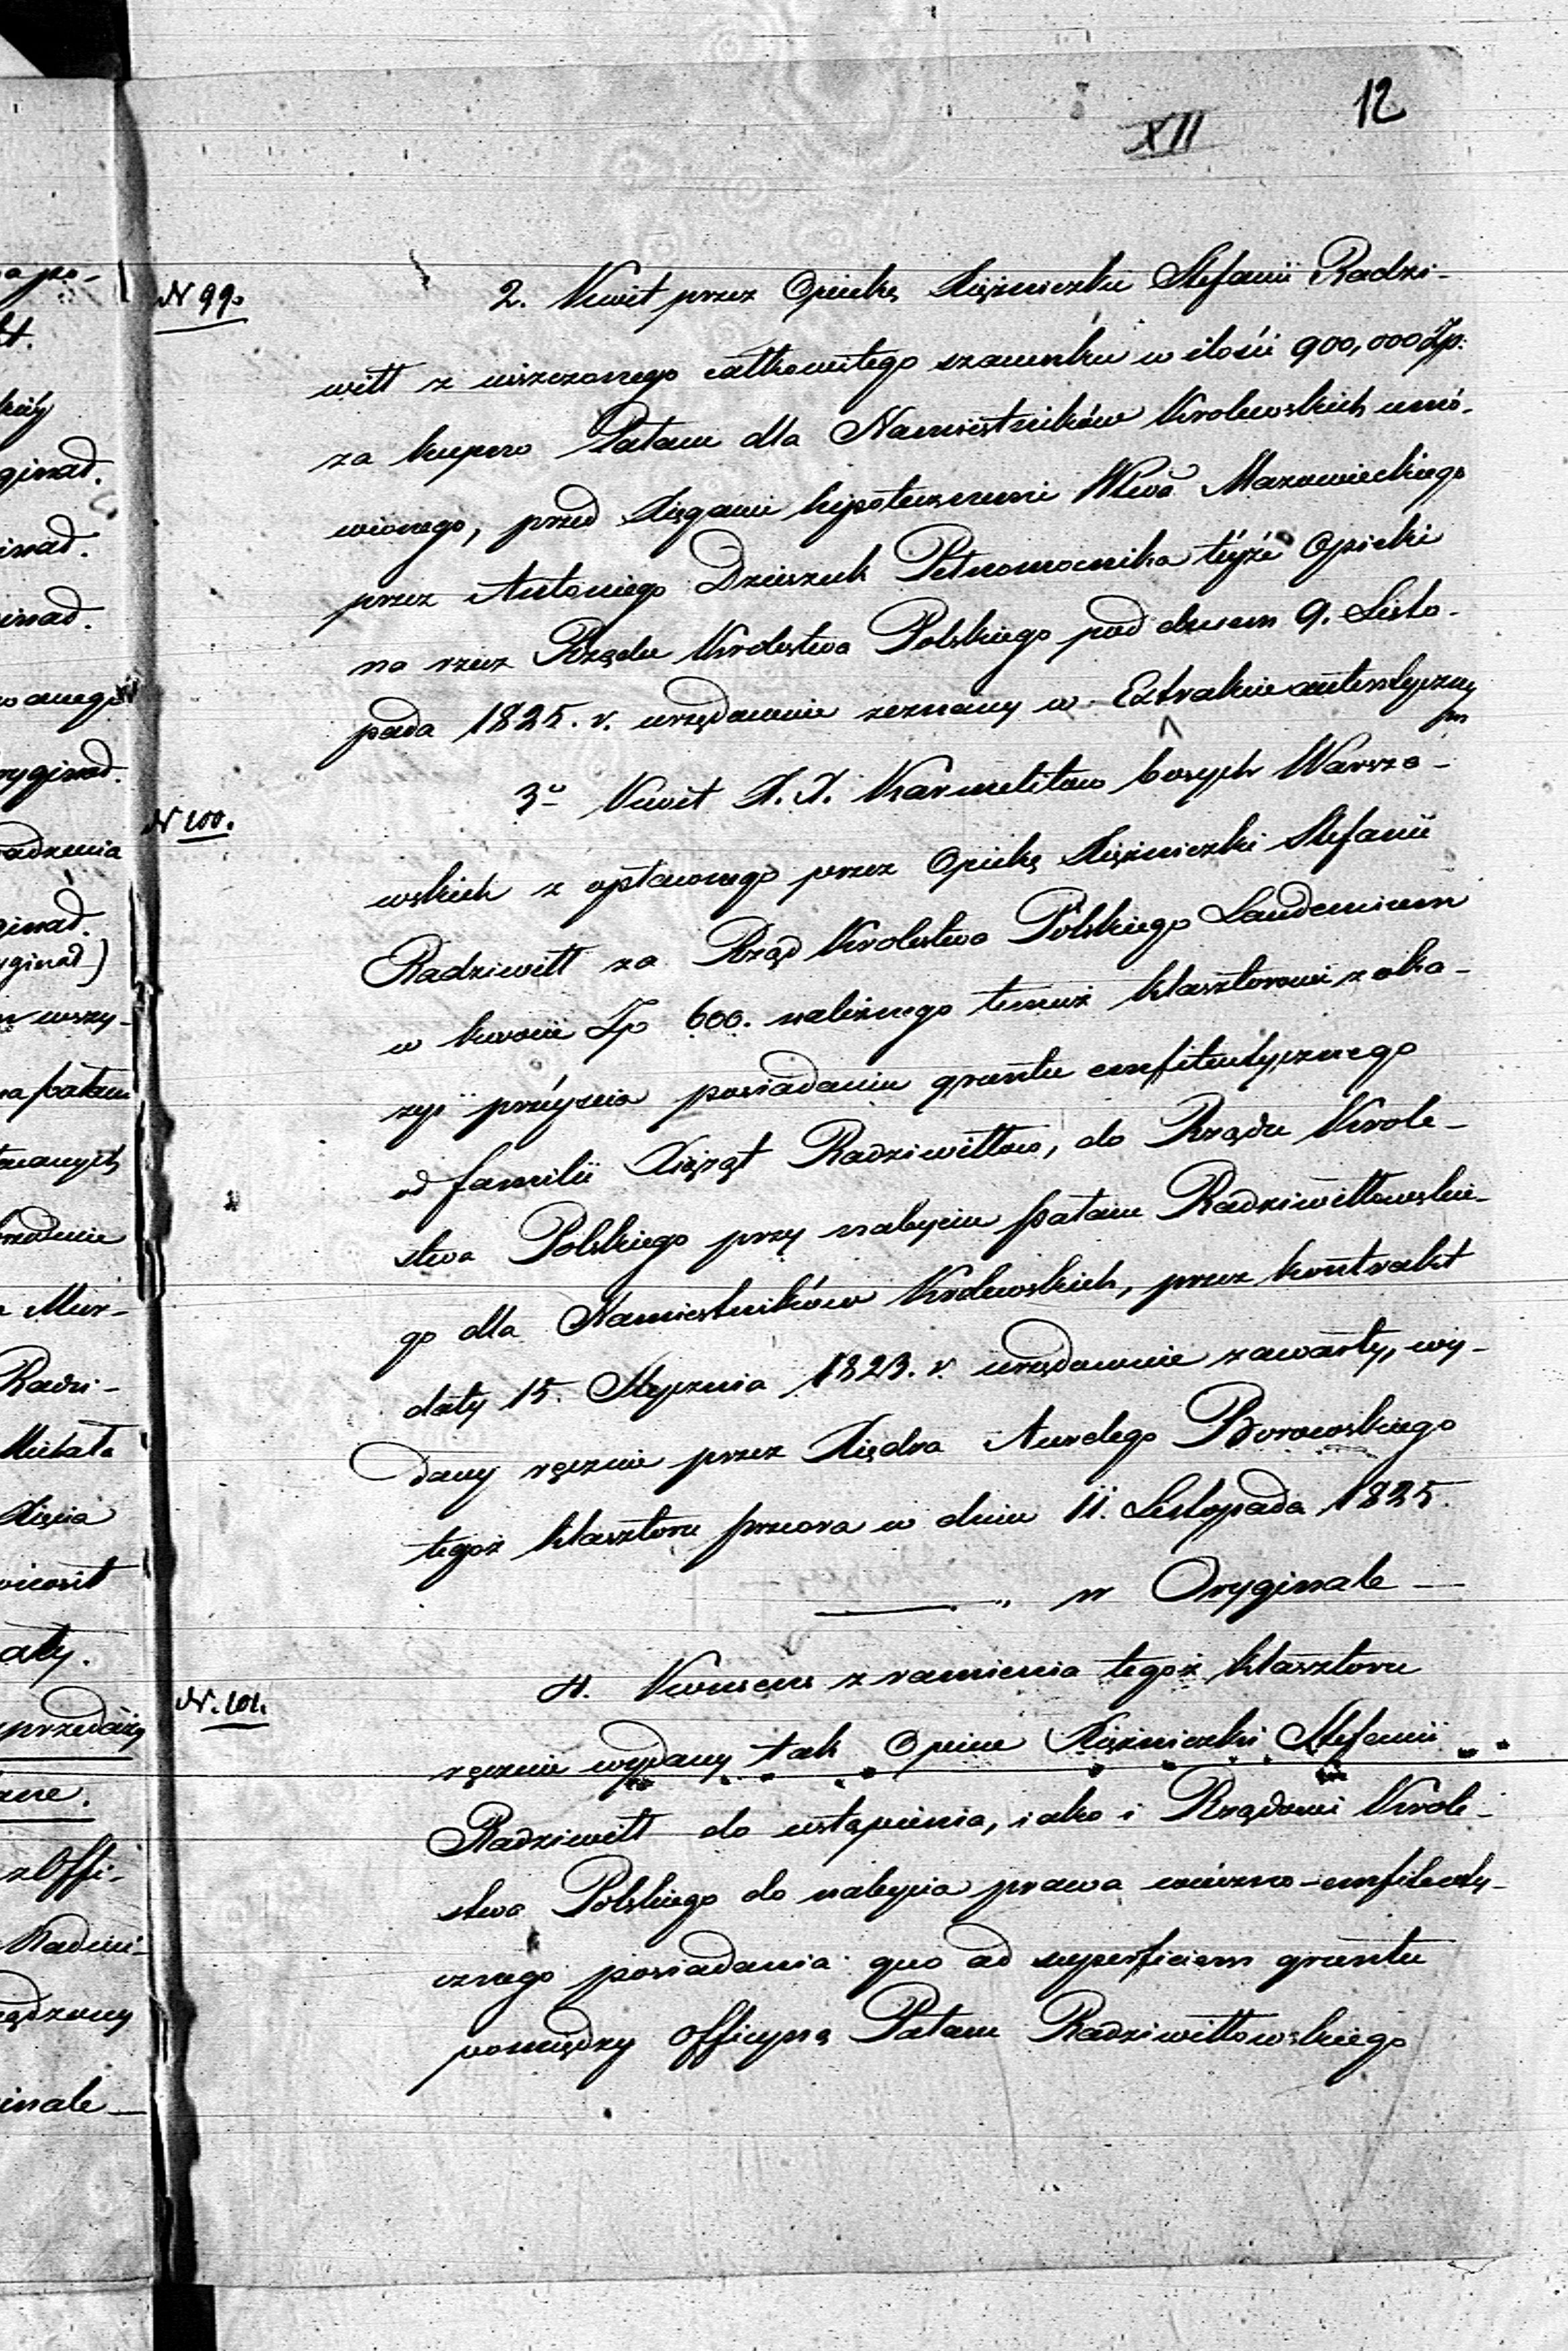 12
XII
N 99.
2. Kwit przez Opiekę Xiężniczki Stefanii Radzi-
wiłł z uiszczonego całkowitego szacunku w ilości 900,000 Zp.
za kupno Pałacu dla Namiestników Krolewskich umó-
wionego, przed Xięgami hipotecznemi Wwa Mazowieckiego
przez Antoniego Dzieszuk Pełnomocnika tejże Opieki
na rzecz Rządu Krolestwa Polskiego pod dniem 9. Listo-
pada 1825. r. urzędownie zeznany w Extrakcie autentycznym
N 100.
3o Kwit X.X. Karmelitow bosych Warsza-
wskich z opłaconego przez Opiekę Xiężniczki Stefanii
Radziwiłł za Rząd Krolestwa Polskiego Laudemium
w kwocie Zp 600. należnego temuż klasztorowi z oka-
zyi przéyscia posiadania gruntu emfiteutycznego
od familii Xiążąt Radziwiłłow, do Rządu Krole-
stwa Polskiego przy nabyciu pałacu Radziwiłłowskie-
go dla Namiestników Krolewskich, przez kontrakt
daty 15. Stycznia 1823. r. urzędownie zawarty, wy-
dany ręcznie przez Xiędza Aurelego Borowskiego
tegoż klasztoru przeora w dniu 11. Listopada 1825.
" w Oryginale —
N. 101.
4. Konsens z ramienia tegoż klasztoru
ręcznie wydany tak Opiece Xiężniczki Stefanii
Radziwiłł do ustąpienia, iako i Rządowi Krole-
stwa Polskiego do nabycia prawa wieczno-emfiteuty-
cznego posiadania quo ad superficiem gruntu
pomiędzy officyną Pałacu Radziwiłłowskiego